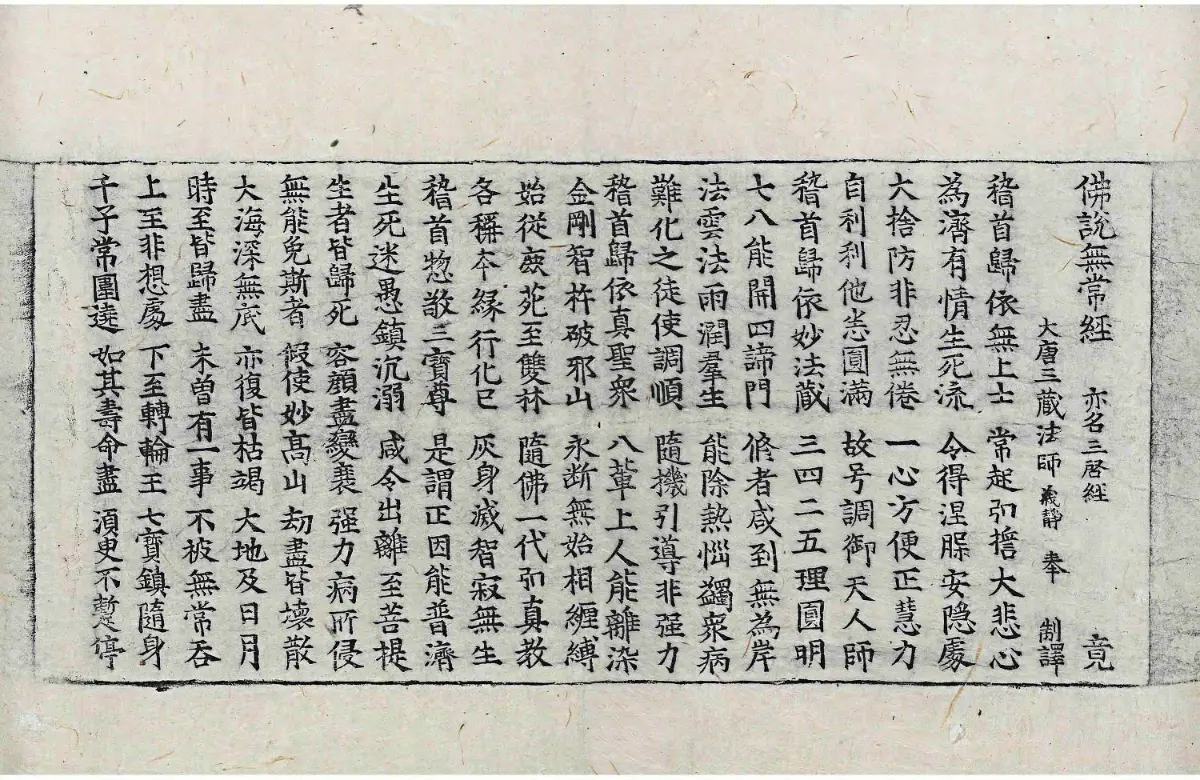 佛說無常経 亦名三啓経 竟
大唐三蔵法師義靜 奉 制譯
稽首歸依無上士 常起弘擔大悲心
為濟有情生死流 令得涅槃安隐處
大捨防非忍無倦 一心方便正慧力
自利利他悉圓滿 故号調御天人師
稽首歸依妙法蔵 三四二五理圓明
七八能開四諦門 修者咸到無為岸
法雲法雨潤羣生 能除熱惱蠲衆病
難化之徒使調順 隨機引導非强力
稽首歸依真聖衆 八軰上人能離染
金剛智杵破邪山 永断無始相纏縛
始從鹿菀至雙林 隨佛一代弘真教
各稱本縁行化已 灰身滅智寂無生
稽首惣敬三寶尊 是謂正因能普濟
生死迷愚鎮沉溺 咸令出離至菩提
生者皆歸死 容顔盡變衰 强力病所侵
無能免斯者 假使妙高山 劫盡皆壞散
大海深無底 亦復皆枯竭 大地及日月
時至皆歸盡 未曽有一事 不被無常吞
上至非想處 下至轉輪王 七寶鎮隨身
千子常圍遶 如其壽命盡 湏更不蹔停